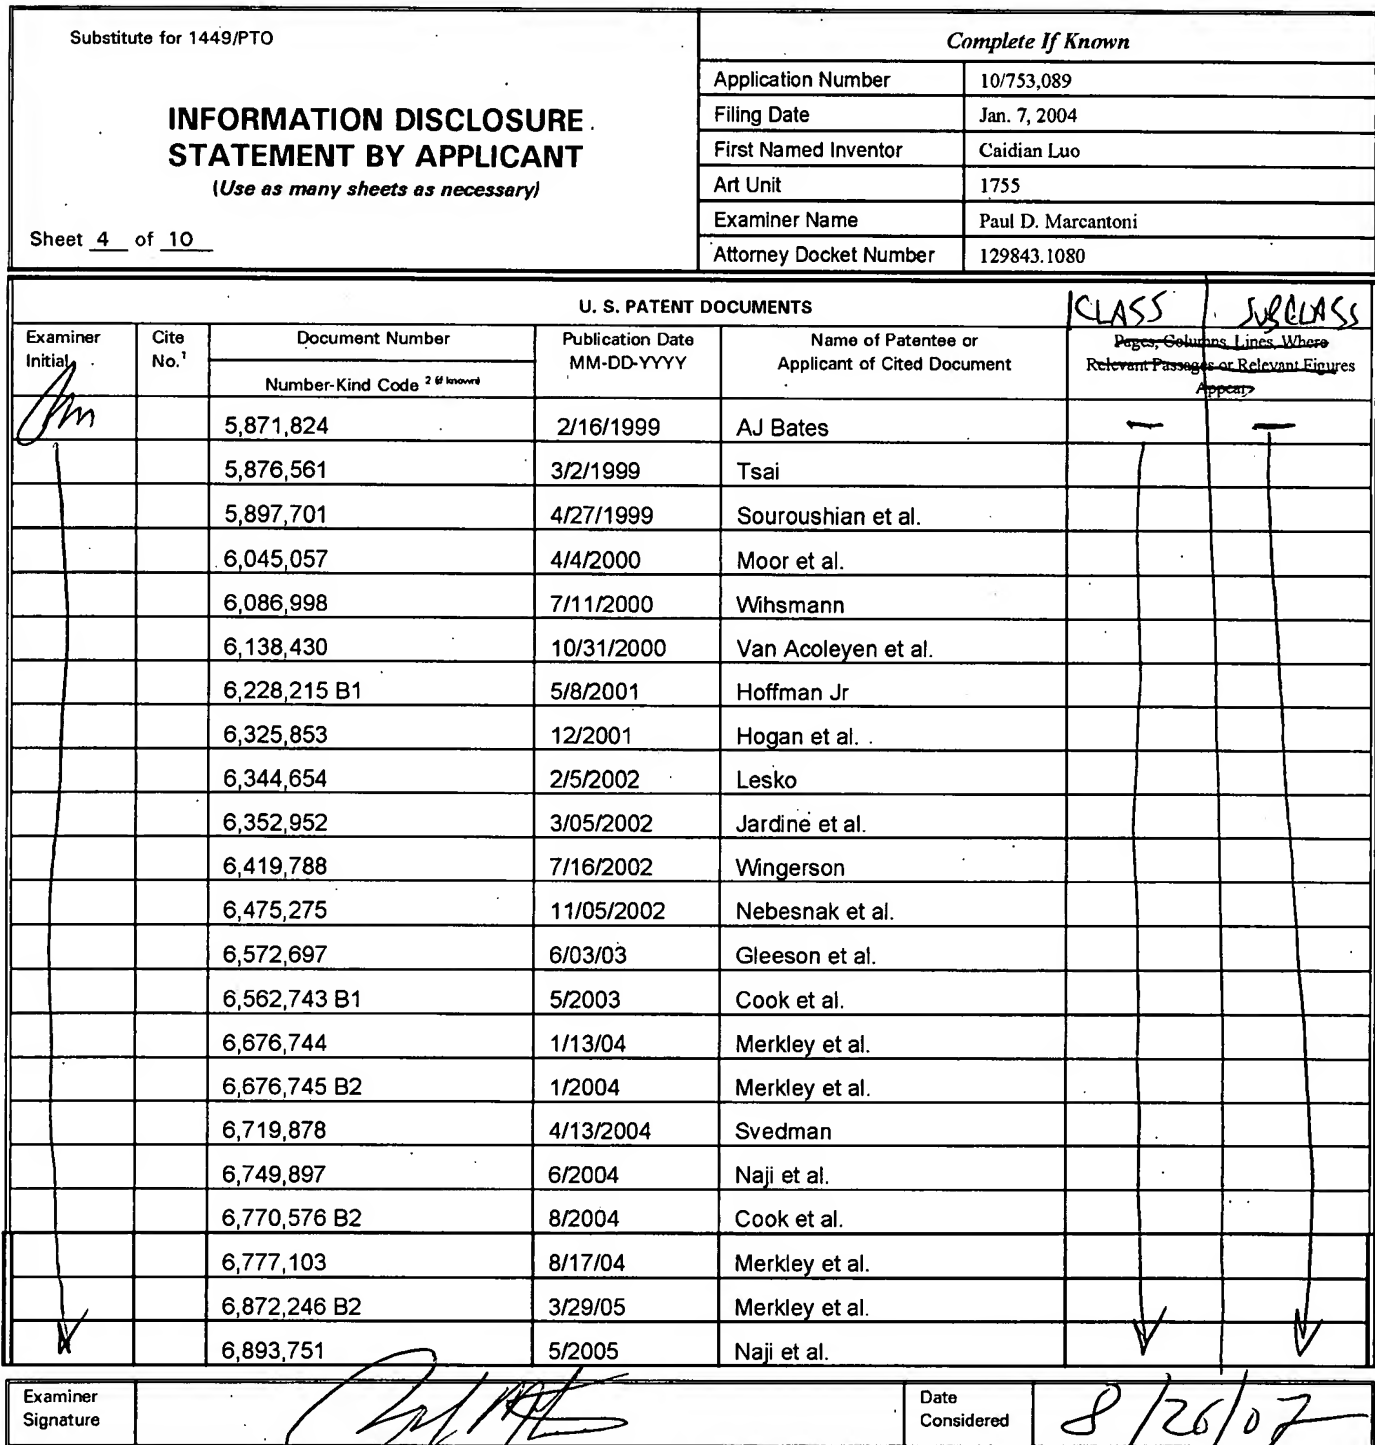 Substitute for 1449/PTO
INFORMATION DISCLOSURE
STATEMENT BY APPLICANT
(Use as many sheets as necessary)
Sheet 4 of 10
Complete If Known
Application Number 10/753,089
Filing Date Jan. 7, 2004
First Named Inventor Caidian Luo
Art Unit 1755
Examiner Name Paul D. Marcantoni
Attorney Docket Number 129843.1080
U. S. PATENT DOCUMENTS
CLASS SUBCLASS
Examiner Initial
Cite No.1
Document Number
Number-Kind Code 2 (if known)
Publication Date
MM-DD-YYYY
Name of Patentee or
Applicant of Cited Document
Pages, Columns, Lines, Where
Relevant Passages or Relevant Figures
Appear
5,871,824 2/16/1999 AJ Bates — —
5,876,561 3/2/1999 Tsai
5,897,701 4/27/1999 Souroushian et al.
6,045,057 4/4/2000 Moor et al.
6,086,998 7/11/2000 Wihsmann
6,138,430 10/31/2000 Van Acoleyen et al.
6,228,215 B1 5/8/2001 Hoffman Jr
6,325,853 12/2001 Hogan et al.
6,344,654 2/5/2002 Lesko
6,352,952 3/05/2002 Jardine et al.
6,419,788 7/16/2002 Wingerson
6,475,275 11/05/2002 Nebesnak et al.
6,572,697 6/03/03 Gleeson et al.
6,562,743 B1 5/2003 Cook et al.
6,676,744 1/13/04 Merkley et al.
6,676,745 B2 1/2004 Merkley et al.
6,719,878 4/13/2004 Svedman
6,749,897 6/2004 Naji et al.
6,770,576 B2 8/2004 Cook et al.
6,777,103 8/17/04 Merkley et al.
6,872,246 B2 3/29/05 Merkley et al.
6,893,751 5/2005 Naji et al.
Examiner
Signature
Date
Considered
8/26/07